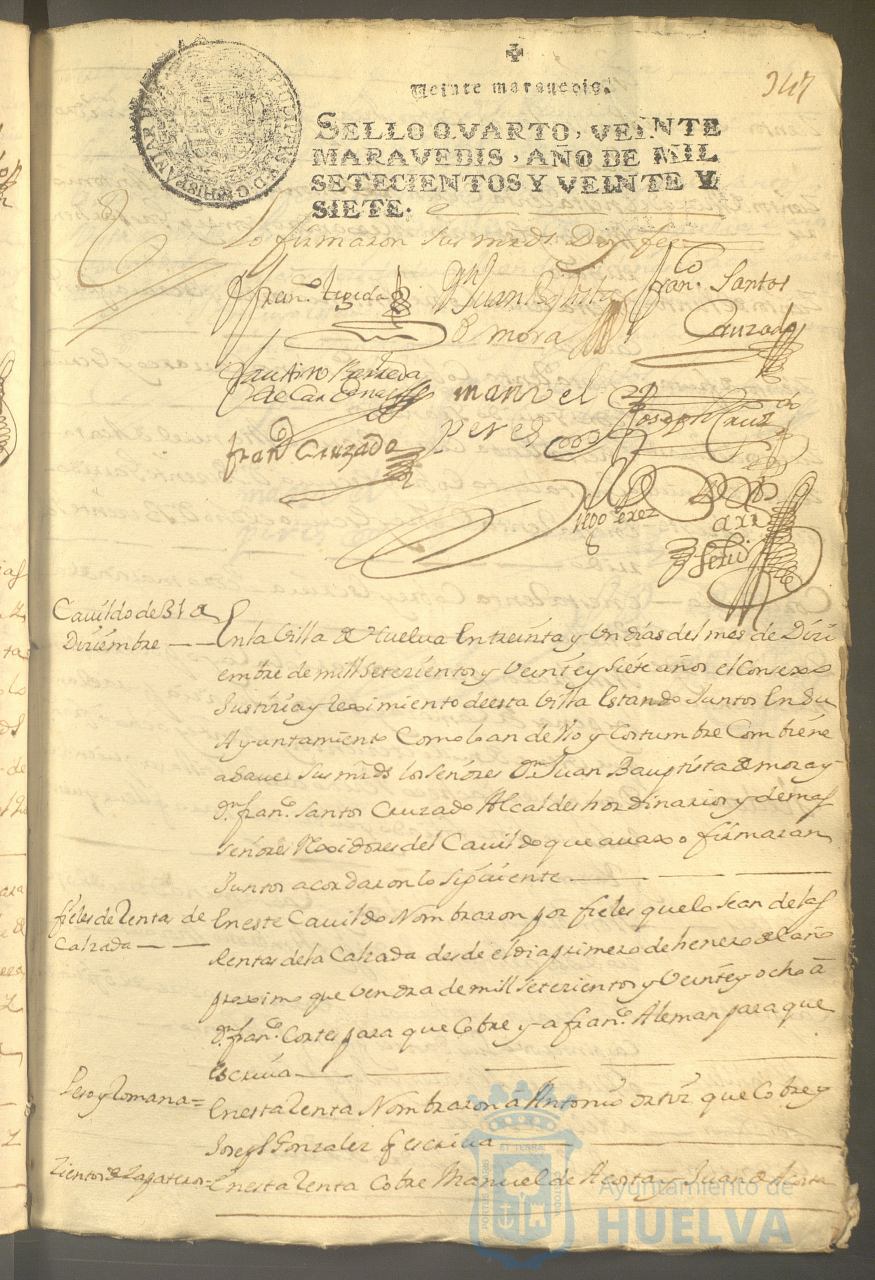 347
Veinte maravedis.
SELLO QVARTO, VEINTE
MARAVEDIS, AÑO DE MIL
SETECIENTOS Y VEINTE Y
SIETE.
HISPANIAR
Lo firmaron sus mrds Doy fee
fran.co
Dn Juan Bptista
de mora
fran.co Santos
Cruzado
Faustino
de Cardenas
manvel
perez
Joseph Cruz
franco Cruzado
Cauildo de 31 de
Diziembre
En la Villa de Huelva En treinta y Un dias del mes de Dizi
embre de mill setezientos y Veinte y siete años el Consexo
Justizia y reximiento de esta Villa Estando Juntos En su
Ayuntamiento Como lo an de Vso y Costumbre Combiene
a sauer sus mrds los señores Dn Juan Bauptista de mora y
Dn fran.co Santos Cruzado Alcaldes hordinarios y demas
señores Rexidores del Cauildo que auaxo firmaran
Juntos acordaron lo siguiente
fieles de Renta de
Calzada
En este Cauildo Nombraron por fieles que lo sean de las
Rentas de la Calzada desde el dia primero de henero del año
proximo que Vendra de mill setezientos y Veinte y ocho a
Dn fran.co Cortes para que Cobre y a fran.co Aleman para que
escriua
Peso y Romana =
En esta Renta Nombraron a Antonio Ortiz que Cobre y
Joseph Gonzalez q escriua
Zientos de Zapateros =
En esta Renta Cobre Manuel de Acosta y Juan de Acosta
Ayuntamiento de
HUELVA